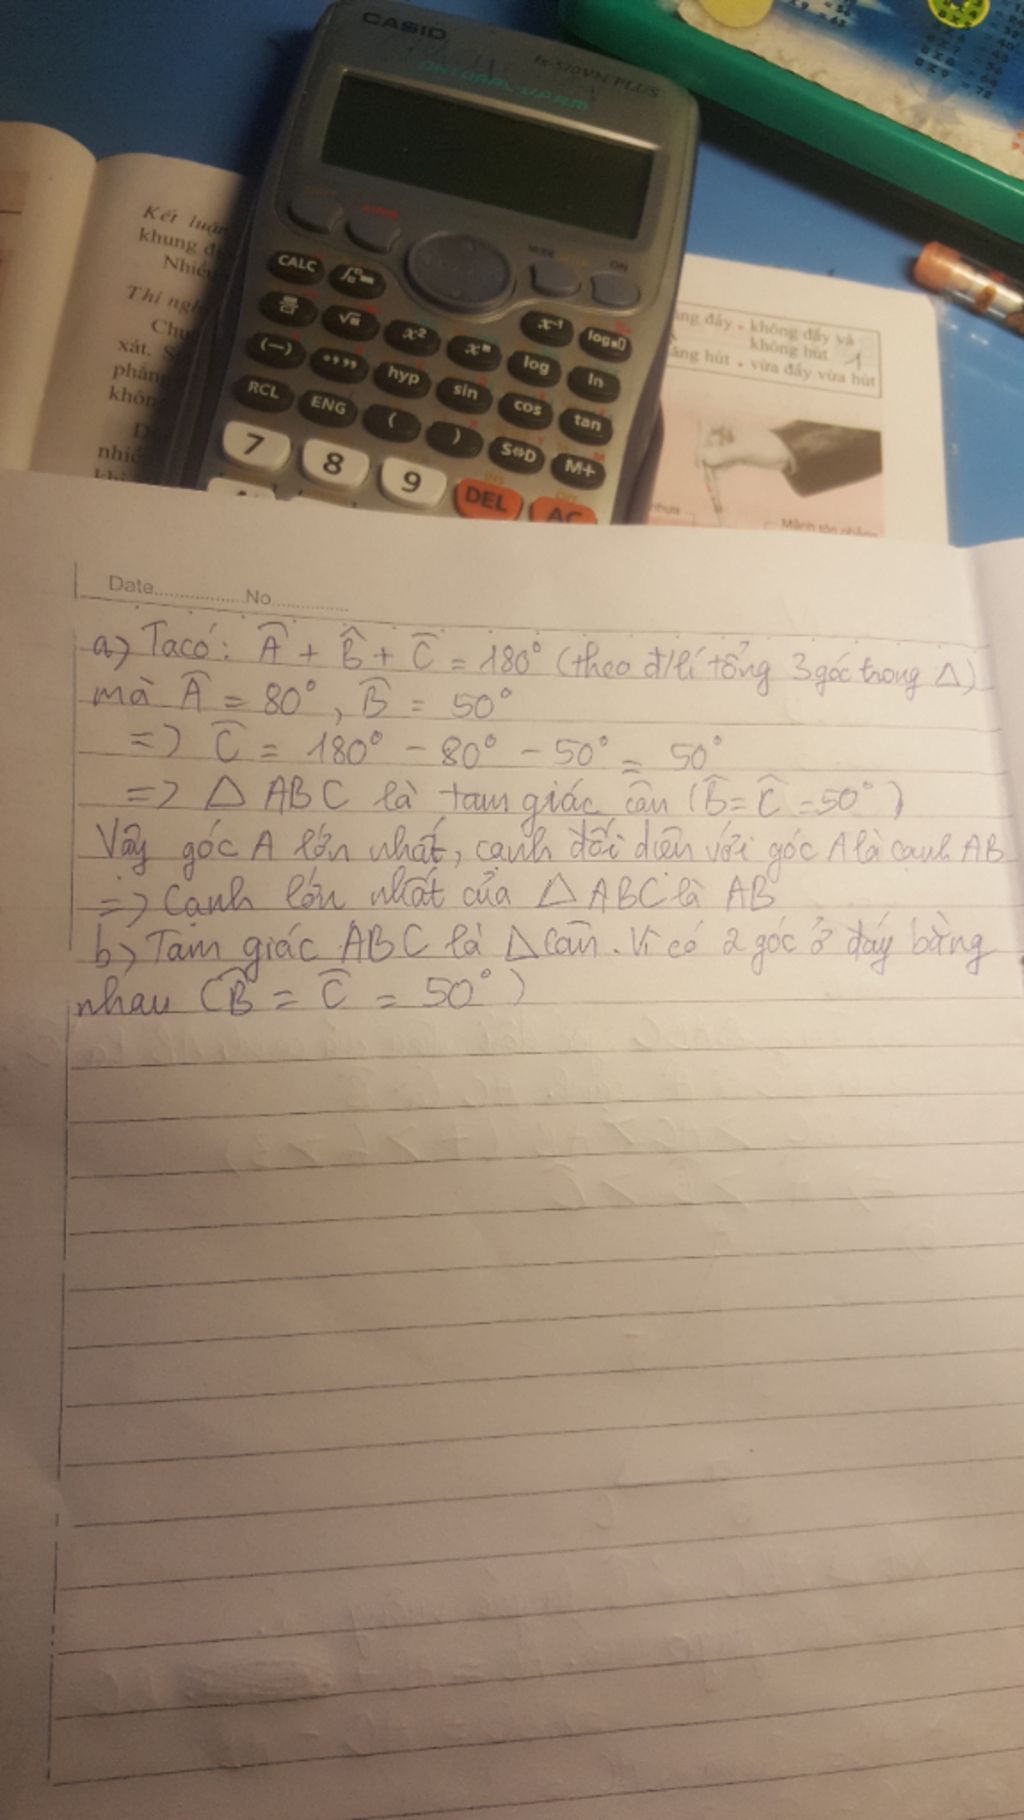 CASIO
fx-570VN PLUS
NATURAL-V.P.A.M.
ALPHA
MODE
ON
CALC
x⁻¹
√
x²
log
ln
(—)
hyp
sin
cos
tan
RCL
ENG
(
)
S⇔D
M+
7
8
9
DEL
AC
8 X 9 = 72
Kết luận
khung đ
Nhiề
Thí ngh
Chu
xát.
phản
khôn
nhiề
ng đẩy • không đẩy và
không hút
ăng hút • vừa đẩy vừa hút
1
nhựa
Mảnh tôn phẳng
Date................No..............
a) Ta có: Â + B̂ + Ĉ = 180° (theo đ/lí tổng 3 góc trong △)
mà Â = 80°, B̂ = 50°
=> Ĉ = 180° - 80° - 50° = 50°
=> △ ABC là tam giác cân (B̂ = Ĉ = 50°)
Vậy góc A lớn nhất, cạnh đối diện với góc A là cạnh AB
=> Cạnh lớn nhất của △ ABC là AB
b) Tam giác ABC là △ cân. Vì có 2 góc ở đáy bằng
nhau (B̂ = Ĉ = 50°)